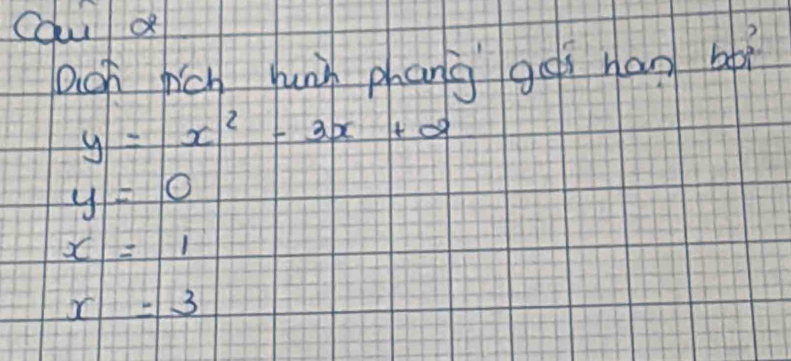 Câu 2
Diện tích hình phẳng giới hạn bởi
y = x² - 3x + 2
y = 0
x = 1
x = 3